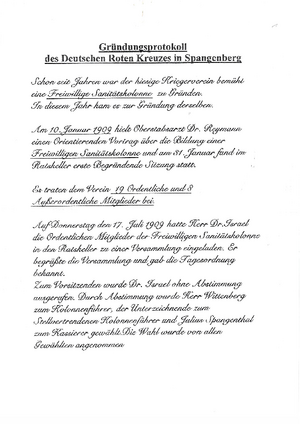 Gründungsprotokoll
des Deutschen Roten Kreuzes in Spangenberg
Schon seit Jahren war der hiesige Kriegerverein bemüht
eine Freiwillige Sanitätskolonne zu Gründen.
In diesem Jahr kam es zur Gründung derselben.
Am 10. Januar 1909 hielt Oberstabsarzt Dr. Reymann
einen Orientierenden Vortrag über die Bildung einer
Freiwilligen Sanitätskolonne und am 31. Januar fand im
Ratskeller erste Begründende Sitzung statt.
Es traten dem Verein 19 Ordentliche und 8
Außerordentliche Mitglieder bei.
Auf Donnerstag den 17. Juli 1909 hatte Herr Dr. Israel
die Ordentlichen Mitglieder der Freiwilligen Sanitätskolonne
in den Ratskeller zu einer Versammlung eingeladen. Er
begrüßte die Versammlung und gab die Tagesordnung
bekannt.
Zum Vorsitzenden wurde Dr. Israel ohne Abstimmung
ausgerufen. Durch Abstimmung wurde Herr Wittenberg
zum Kolonnenführer, der Unterzeichnende zum
Stellvertretendenen Kolonnenführer und Julius Spangenthal
zum Kassierer gewählt. Die Wahl wurde von allen
Gewählten angenommen